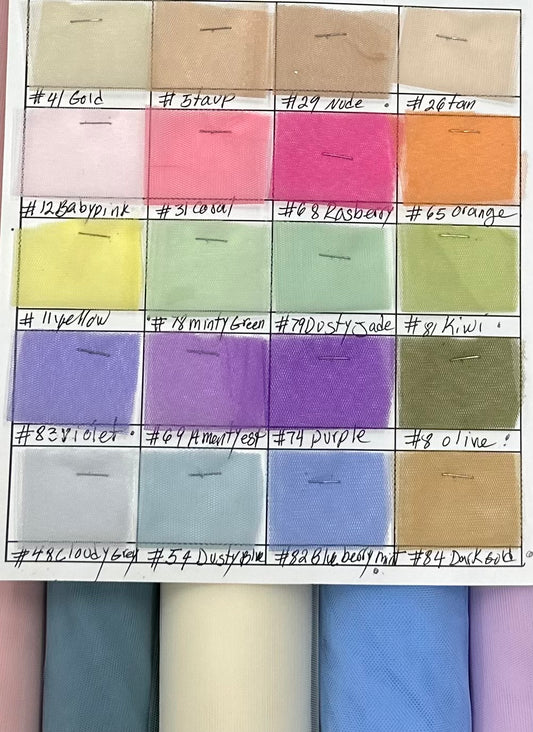 #41 Gold #5taup #29 Nude . #26 Tan
#12 Babypink #31 Coral #68 Rasberry #65 orange
#11 yellow #78 minty Green #79 Dusty Jade #81 Kiwi .
#83 violet . #69 Amentyest #74 purple #8 oline :
#48 Cloudy Grey #54 Dusty Blue #82 Blueberry mint #84 Dark Gold